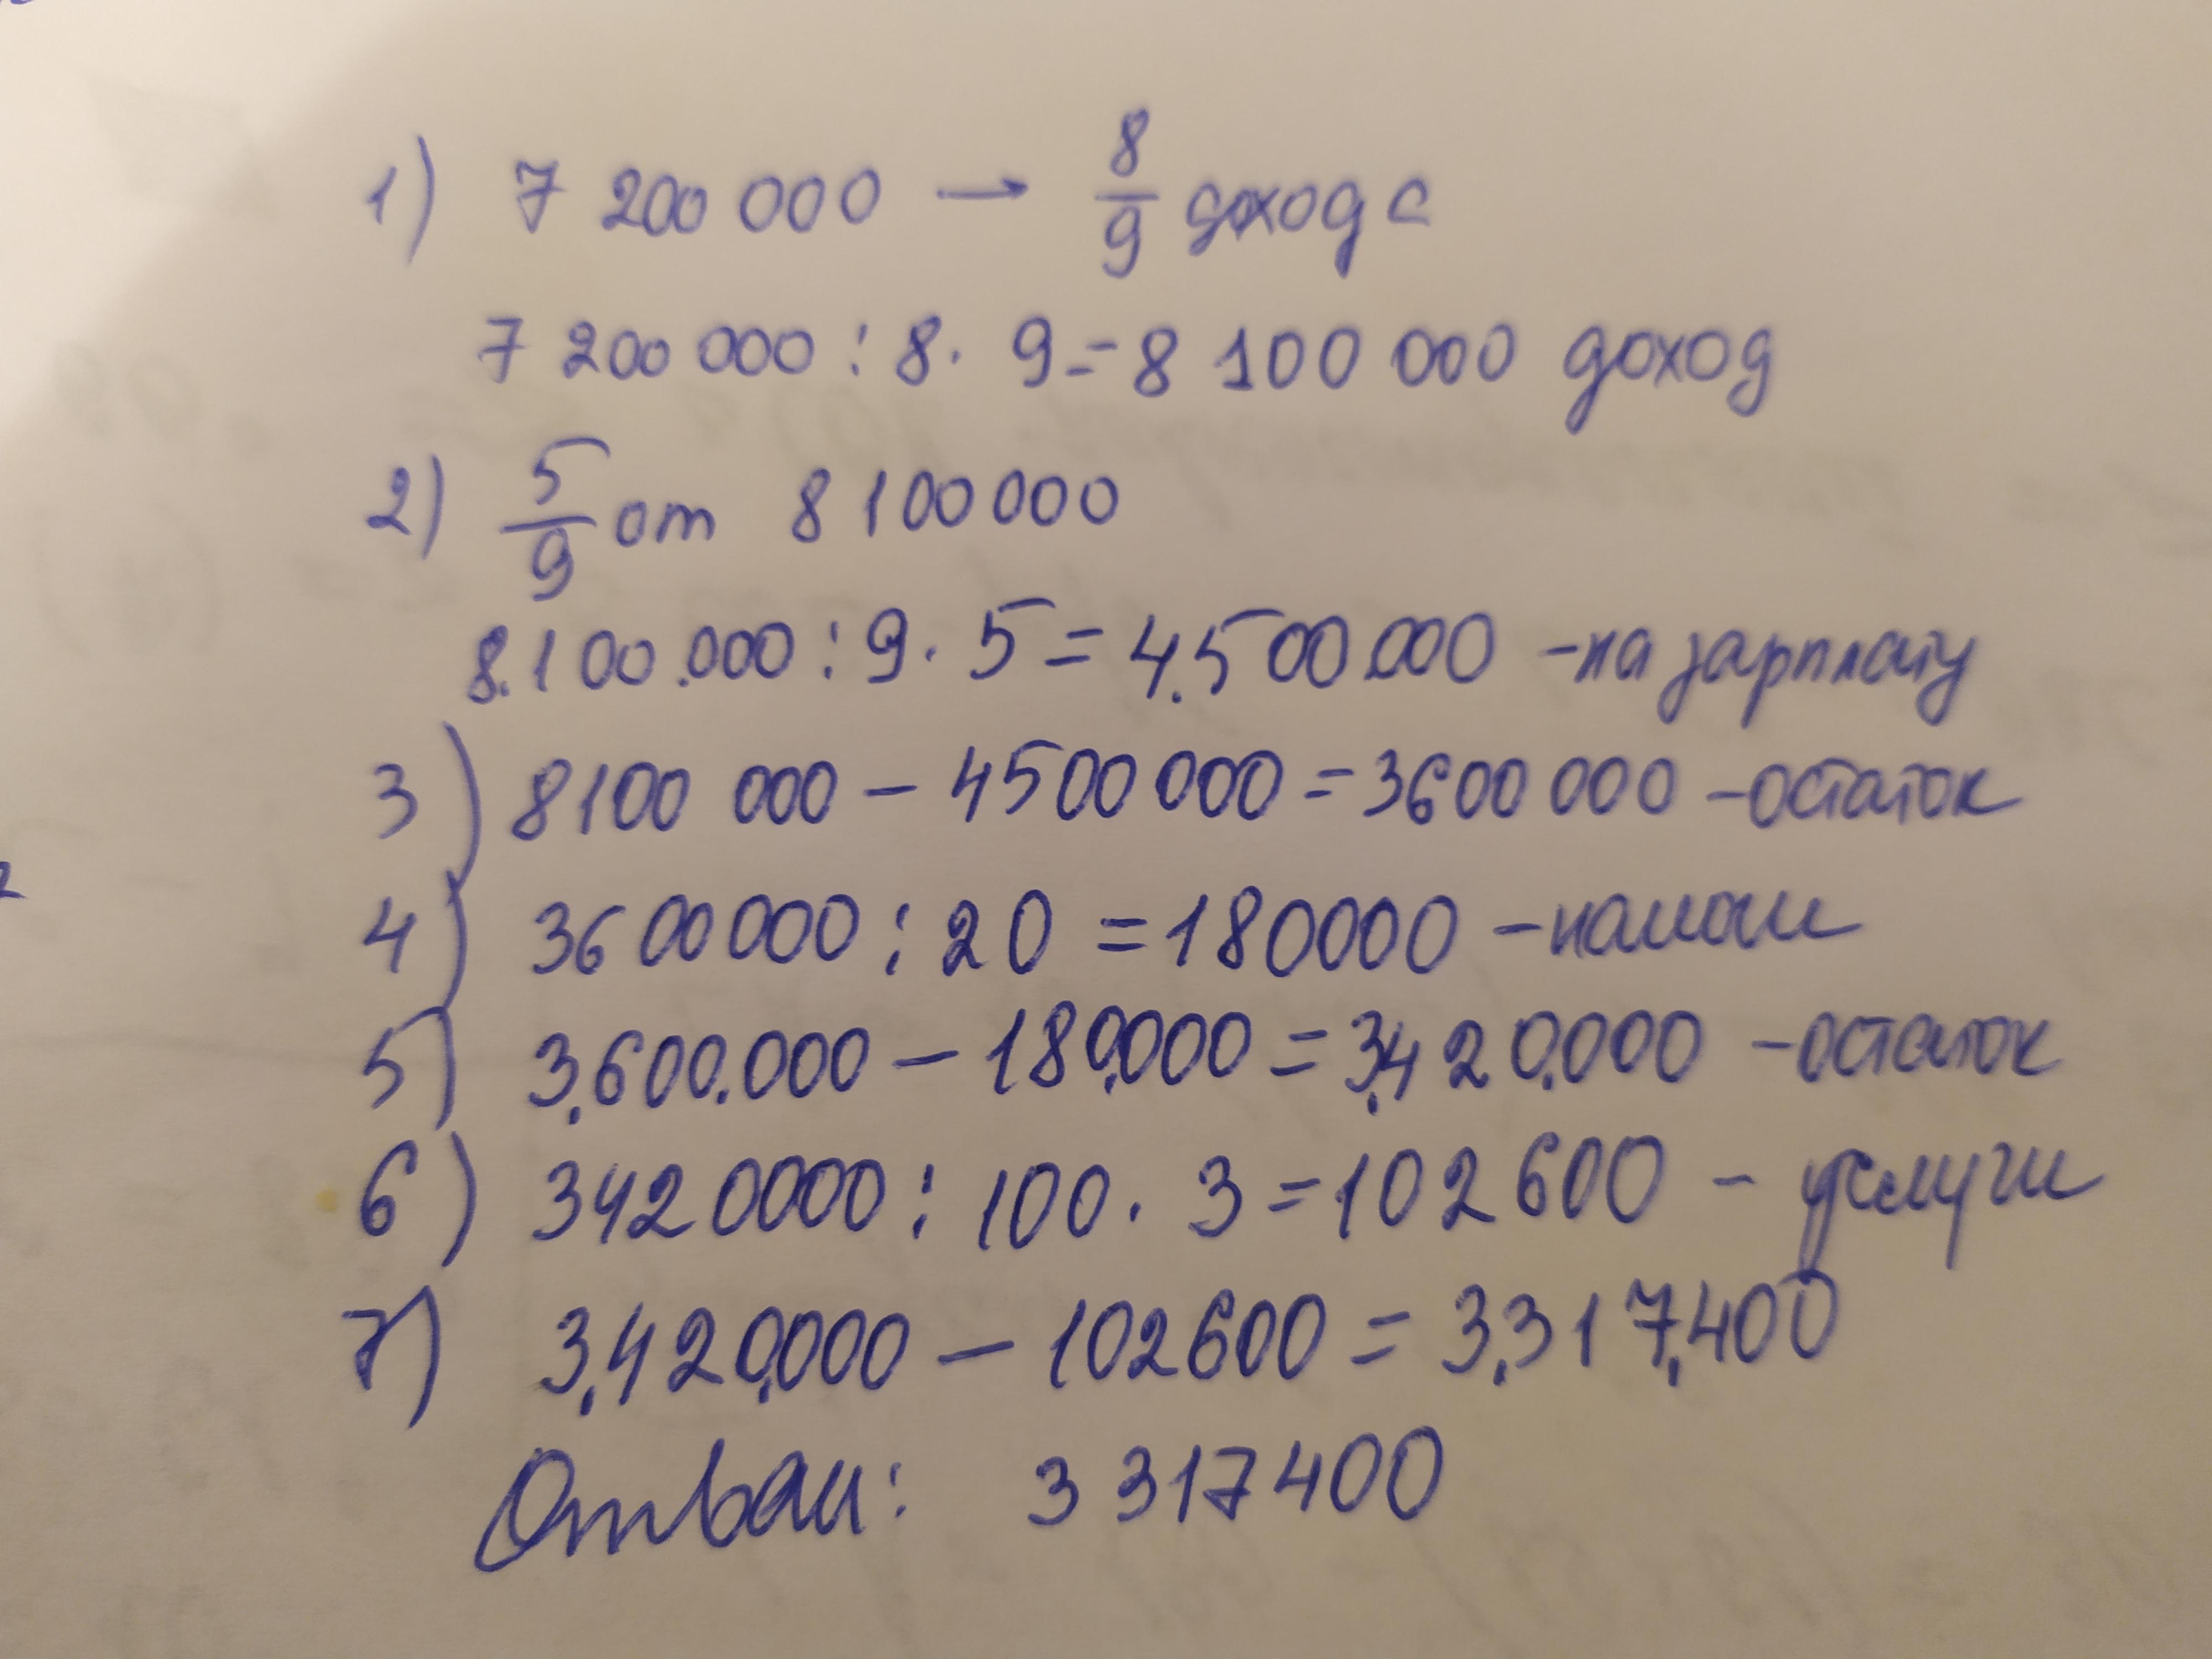 1) 7 200 000 → 8/9 дохода
7 200 000 : 8 · 9 = 8 100 000 доход
2) 5/9 от 8 100 000
8.100.000 : 9 · 5 = 4.500.000 - на зарплату
3) 8100 000 - 4500 000 = 3600 000 - остаток
4) 3600000 : 20 = 180000 - налоги
5) 3.600.000 - 180.000 = 3.420.000 - остаток
6) 3420000 : 100 · 3 = 102600 - услуги
7) 3.420.000 - 102600 = 3.317.400
Ответ: 3 317400